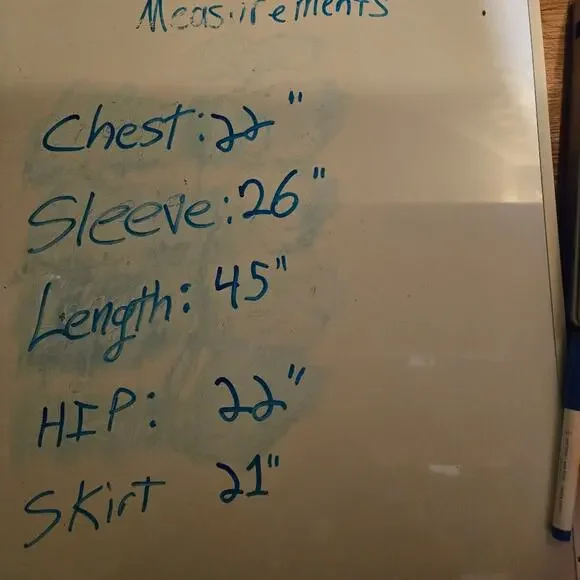 Measurements
Chest: 22"
Sleeve: 26"
Length: 45"
HIP: 22"
Skirt 21"